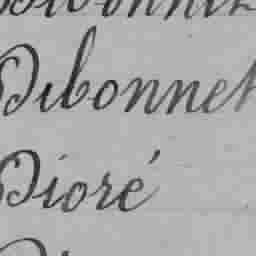 Dibonnet
Dioré